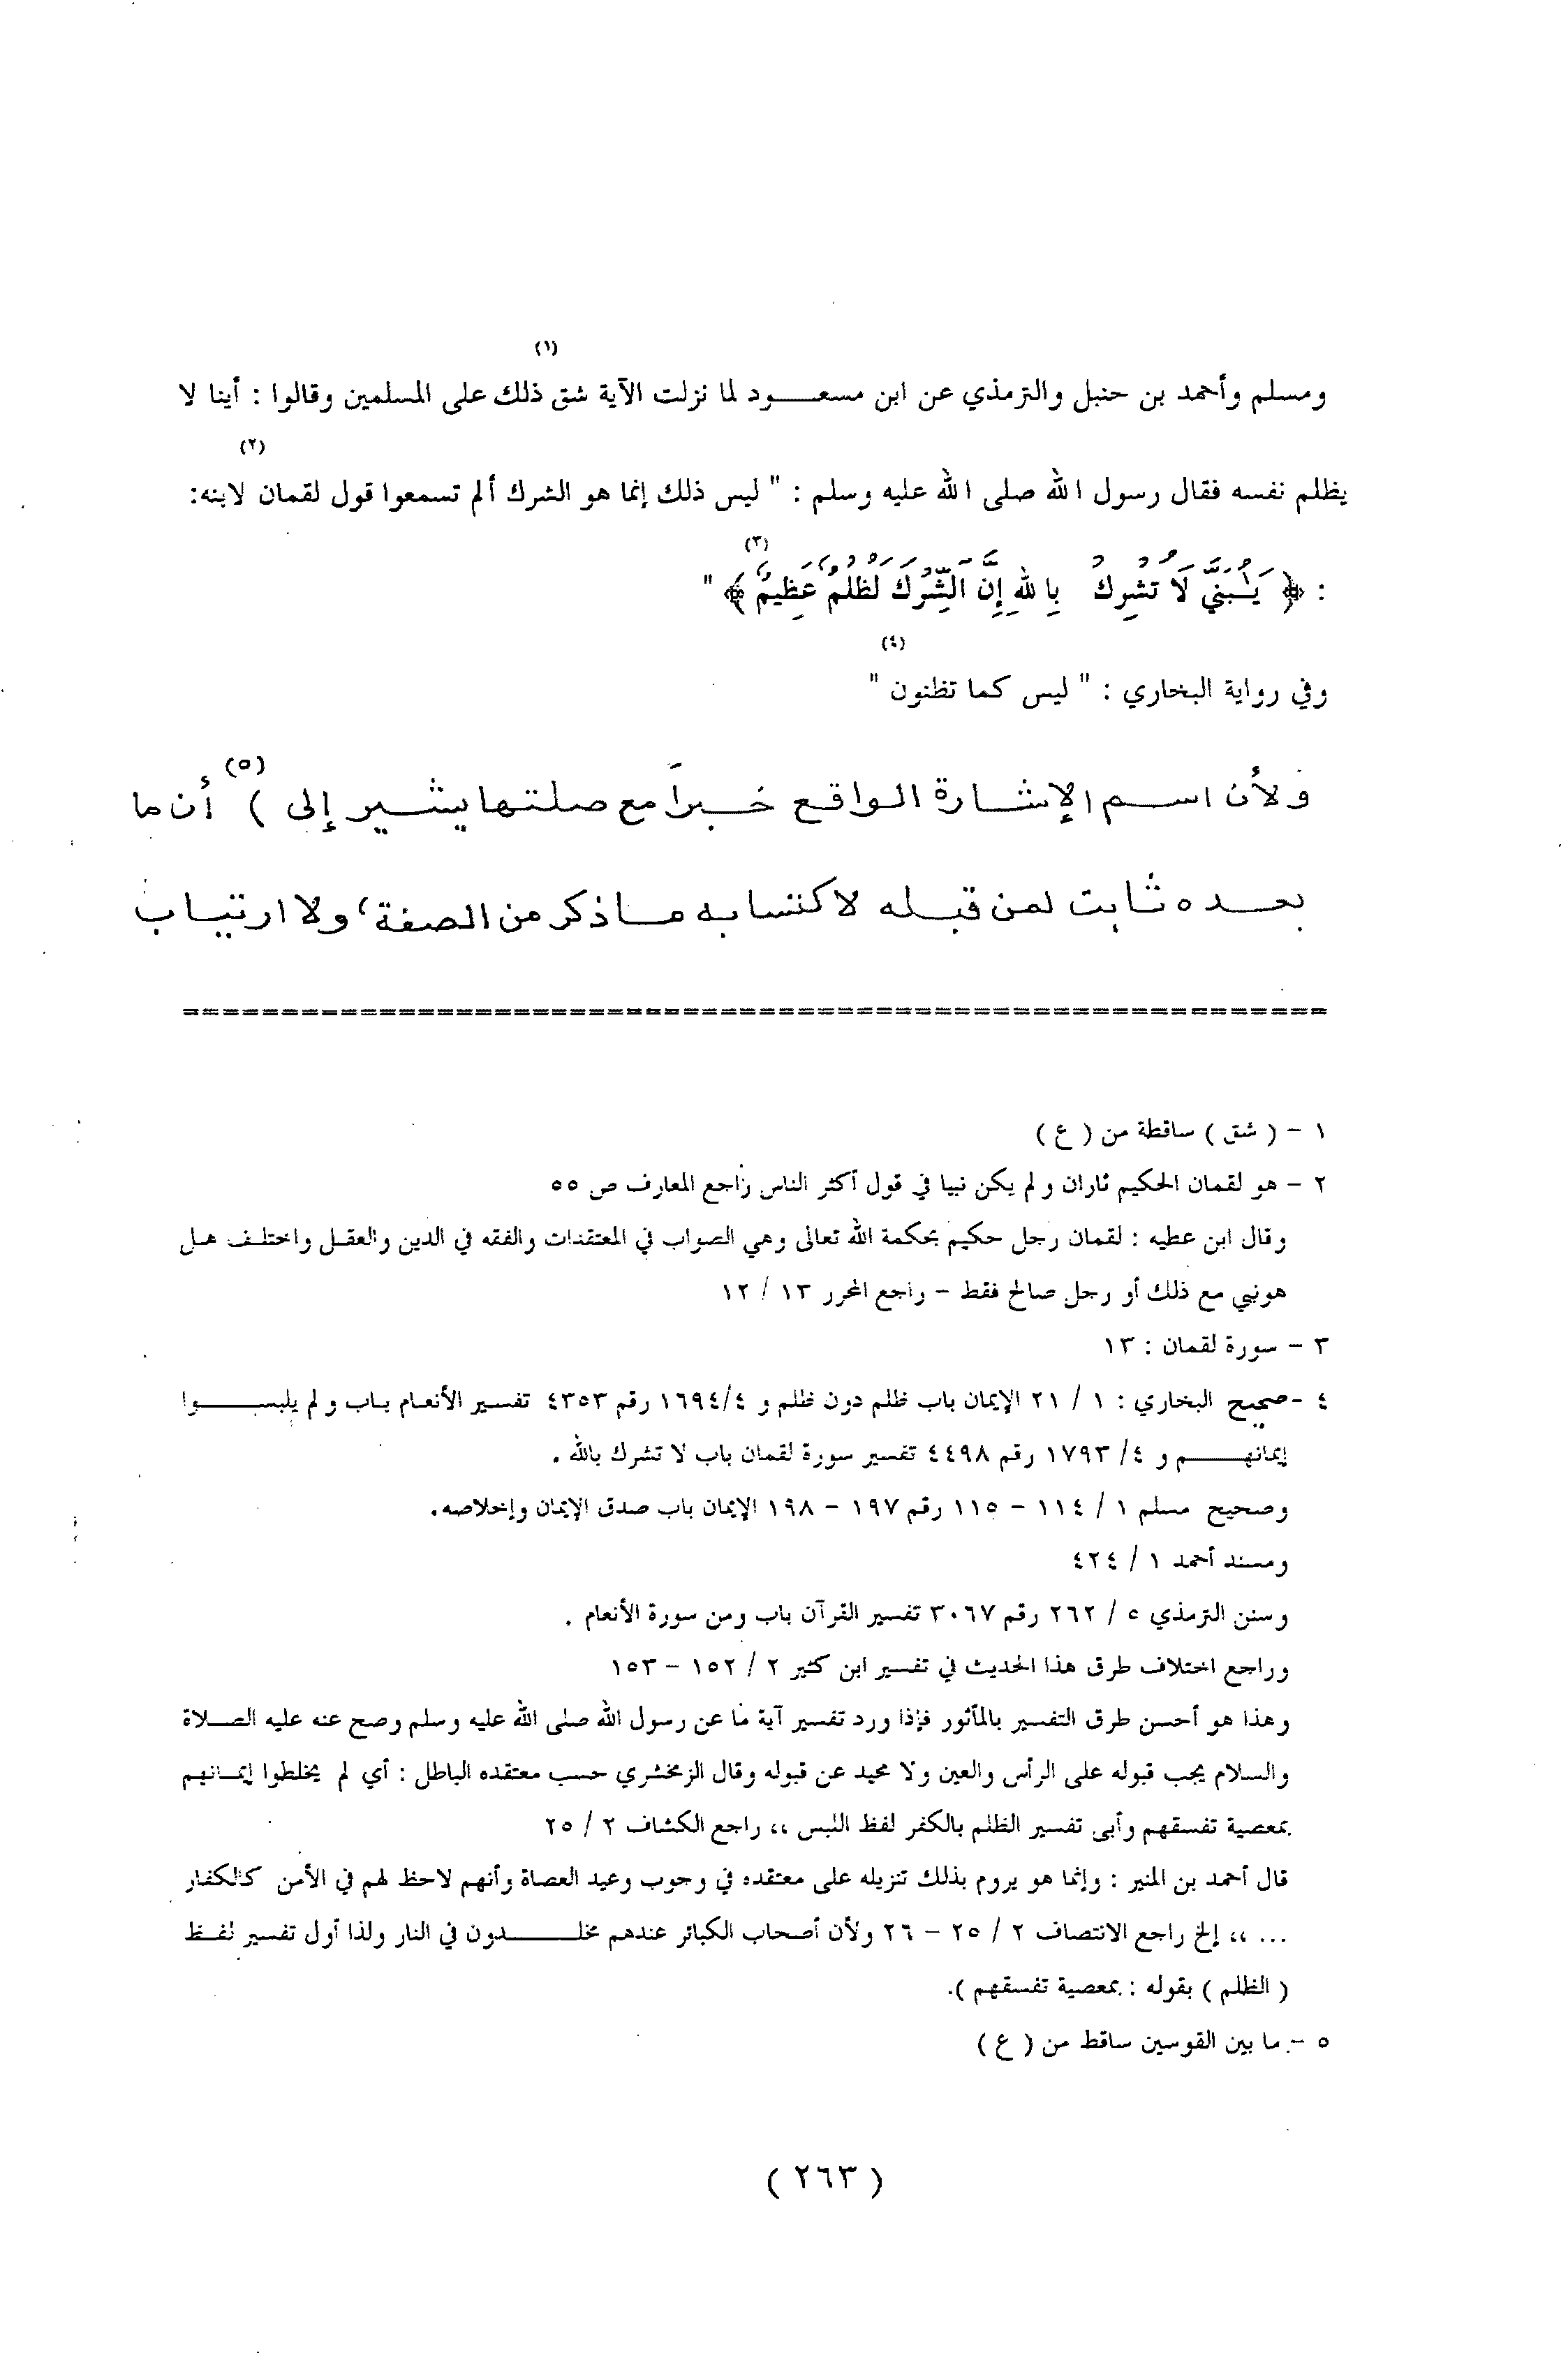 (١)
ومسلم وأحمد بن حنبل والترمذي عن ابن مسعـــود لما نزلت الآية شق ذلك على المسلمين وقالوا : أينا لا
(٢)
يظلم نفسه فقال رسول الله صلى الله عليه وسلم : " ليس ذلك إنما هو الشرك ألم تسمعوا قول لقمان لابنه:
(٣)
: ﴿ يَٰبُنَيَّ لَا تُشْرِكْ بِاللَّهِ إِنَّ الشِّرْكَ لَظُلْمٌ عَظِيمٌ ﴾ "
(٤)
وفي رواية البخاري : " ليس كما تظنون "
(٥)
ولأن اسـم الإشـارة الواقـع خـبراً مع صلتـها يشـير إلى ) أن ما
بعـده ثـابت لمن قبـله لاكتسابه مـا ذكر من الصفة، ولا ارتيـاب
================================================
١ - ( شق ) ساقطة من ( ع )
٢ - هو لقمان الحكيم ثاران و لم يكن نبيا في قول أكثر الناس راجع المعارف ص ٥٥
وقال ابن عطيه : لقمان رجل حكيم بحكمة الله تعالى وهي الصواب في المعتقدات والفقه في الدين والعقـل واختلـف هـل
هونبي مع ذلك أو رجل صالح فقط - راجع المحرر ١٣ / ١٢
٣ - سورة لقمان : ١٣
٤ -صحيح البخاري : ١ / ٢١ الإيمان باب ظلم دون ظلم و ١٦٩٤/٤ رقم ٤٣٥٣ تفسير الأنعـام بـاب و لم يلبســـوا
إيمانهـــم و ٤ /١٧٩٣ رقم ٤٤٩٨ تفسير سورة لقمان باب لا تشرك بالله .
وصحيح مسلم ١ / ١١٤ - ١١٥ رقم ١٩٧ - ١٩٨ الإيمان باب صدق الإيمان وإخلاصه.
ومسند أحمد ١ / ٤٢٤
وسنن الترمذي ٥ / ٢٦٢ رقم ٣٠٦٧ تفسير القرآن باب ومن سورة الأنعام .
وراجع اختلاف طرق هذا الحديث في تفسير ابن كثير ٢ / ١٥٢ - ١٥٣
وهذا هو أحسن طرق التفسير بالمأثور فإذا ورد تفسير آية ما عن رسول الله صلى الله عليه وسلم وصح عنه عليه الصـلاة
والسلام يجب قبوله على الرأس والعين ولا محيد عن قبوله وقال الزمخشري حسب معتقده الباطل : أي لم يخلطوا إيمـانهم
بمعصية تفسقهم وأبى تفسير الظلم بالكفر لفظ اللبس ،، راجع الكشاف ٢ / ٢٥
قال أحمد بن المنير : وإنما هو يروم بذلك تنزيله على معتقده في وجوب وعيد العصاة وأنهم لاحظ لهم في الأمن كالكفار
... ،، إلخ راجع الانتصاف ٢ / ٢٥ - ٢٦ ولأن أصحاب الكبائر عندهم مخلـــدون في النار ولذا أول تفسير لفـظ
( الظلم ) بقوله : بمعصية تفسقهم ).
٥ - ما بين القوسين ساقط من ( ع )
( ٢٦٣ )